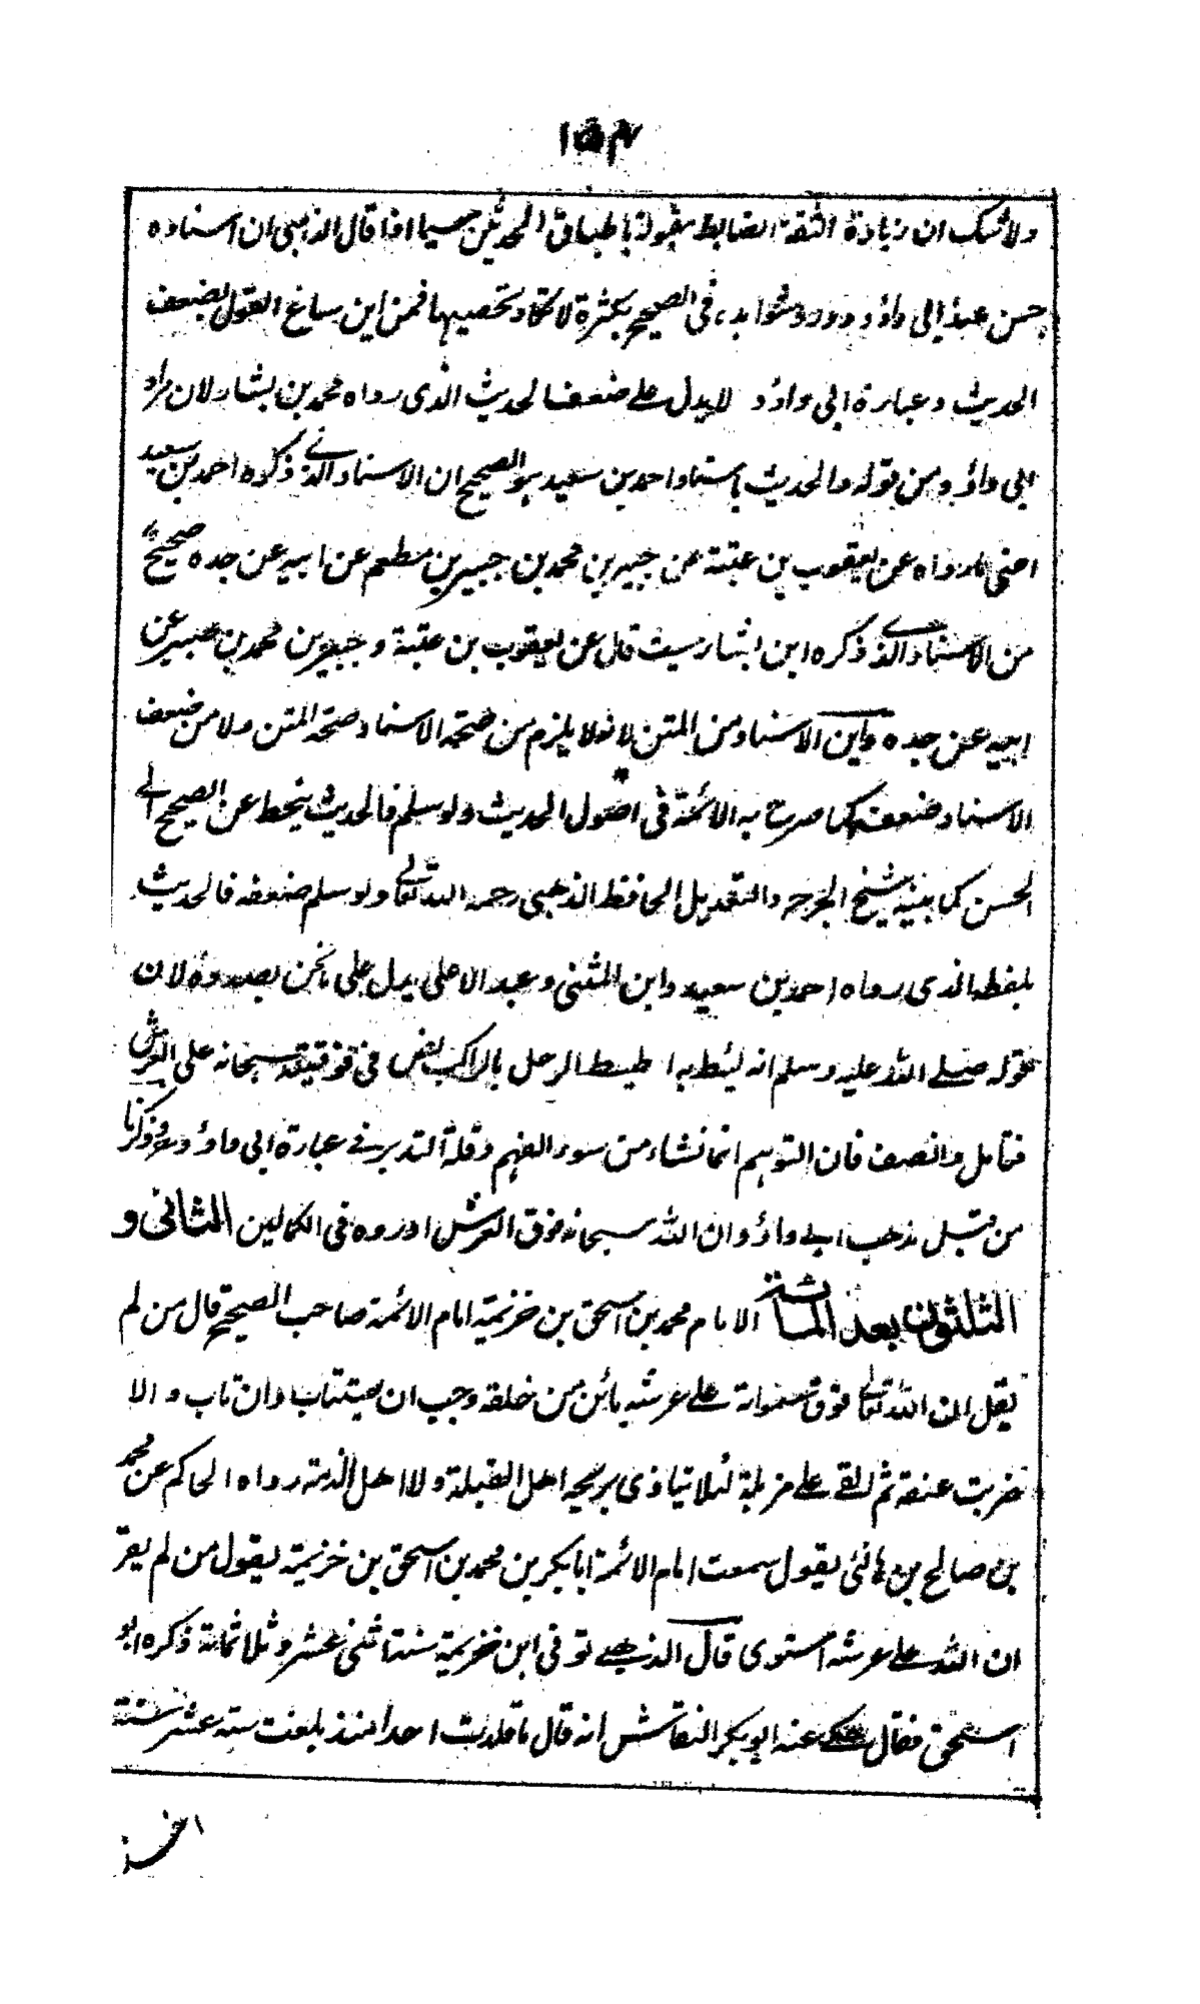 ١٥٢
ولا شك ان زيادة الثقة الضابط مقبولة باطباق المحدثين سيما اذا قال الذهبي ان اسناده
حسن عند ابي داؤد وورد شواهده في الصحيح بكثرة لا تكاد تحصيها فمن اين ساغ القول بضعف
الحديث وعبارة ابي داؤد لا يدل على ضعف الحديث الذى رواه محمد بن بشار لان مراد
ابي داؤد من قوله والحديث باسناد احمد بن سعيد هو الصحيح ان الاسناد الذى ذكره احمد بن سعيد
اعنى ما رواه عن يعقوب بن عتبة عن جبير بن محمد بن جبير بن مطعم عن ابيه عن جده صحيح
من الاسناد الذى ذكره ابن بشار حيث قال عن يعقوب بن عتبة وجبير بن محمد بن جبير عن
ابيه عن جده واين الاسناد من المتن لانه لا يلزم من صحة الاسناد صحة المتن ولا من ضعف
الاسناد ضعفه كما صرح به الائمة في اصول الحديث ولو سلم فالحديث ينحط عن الصحيح الى
الحسن كما بينه شيخ الجرح والتعديل الحافظ الذهبي رحمه الله تعالى ولو سلم ضعفه فالحديث
بلفظ الذى رواه احمد بن سعيد وابن المثنى وعبد الاعلى يدل على ما نحن بصدده لان
قوله صلى الله عليه وسلم انه ليئط به اطيط الرحل بالراكب نص في فوقيته سبحانه على العرش
فتامل وانصف فان التوهم انما نشاء من سوء الفهم وقلة التدبر في عبارة ابي داؤد وذكرنا
من قبل مذهب ابي داؤد ان الله سبحانه فوق العرش اورده في الكمالين الثانى و
الثلثون بعد المائة الامام محمد بن اسحق بن خزيمة امام الائمة صاحب الصحيح قال من لم
يقل ان الله تعالى فوق سمواته على عرشه بائن من خلقه وجب ان يستتاب وان تاب والا
ضربت عنقه ثم القى على مزبلة لئلا يتاذى بريحه اهل القبلة ولا اهل الذمة رواه الحاكم عن محمد
بن صالح بن هانئ يقول سمعت امام الائمة ابا بكر بن محمد بن اسحق بن خزيمة يقول من لم يقر
ان الله على عرشه استوى قال الذهبي توفى ابن خزيمة سنة اثنى عشر وثلاثمائة ذكره ابو
اسحق فقال حكى عنه ابو بكر النقاش انه قال ما قلدت احدا منذ بلغت ستة عشر سنة